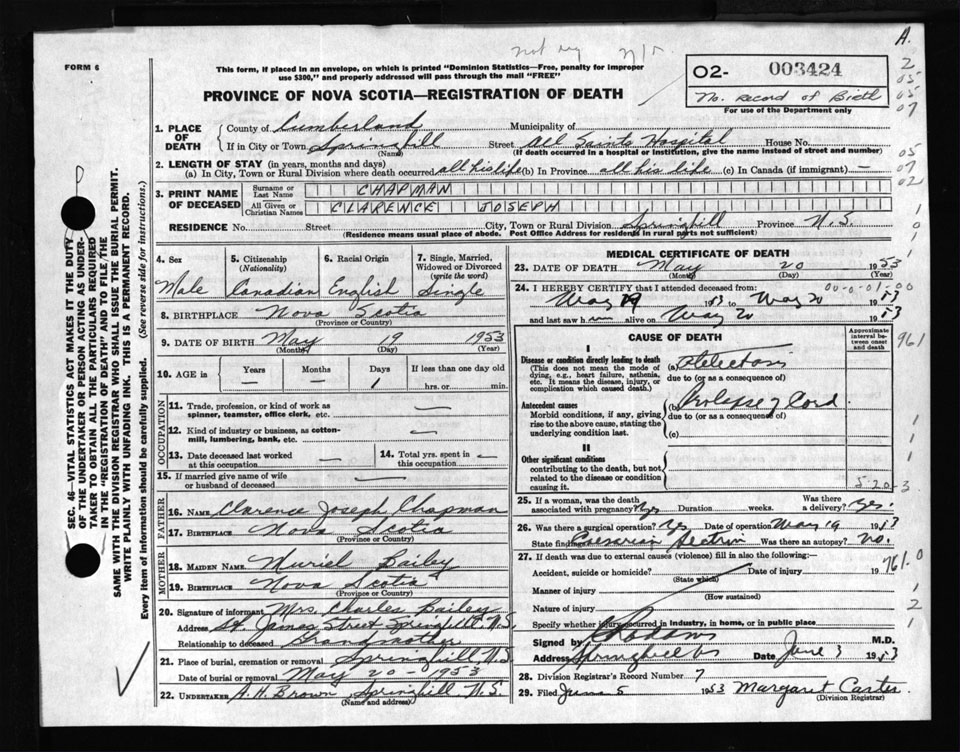 not reg n/r
A.
FORM 6
This form, if placed in an envelope, on which is printed "Dominion Statistics—Free, penalty for improper
use $300," and properly addressed will pass through the mail "FREE"
O2- 003424
No. record of Birth
For use of the Department only
PROVINCE OF NOVA SCOTIA—REGISTRATION OF DEATH
1. PLACE OF DEATH
County of Cumberland Municipality of
If in City or Town Springhill Street All Saints Hospital House No.
(Name) (If death occurred in a hospital or institution, give the name instead of street and number)
2. LENGTH OF STAY (in years, months and days)
(a) In City, Town or Rural Division where death occurred all his life (b) In Province all his life (c) In Canada (if immigrant) —
3. PRINT NAME OF DECEASED
Surname or Last Name CHAPMAN
All Given or Christian Names CLARENCE JOSEPH
RESIDENCE No. Street City, Town or Rural Division Springhill Province N.S.
(Residence means usual place of abode. Post Office Address for residents in rural parts not sufficient)
4. Sex
Male
5. Citizenship
(Nationality)
Canadian
6. Racial Origin
English
7. Single, Married,
Widowed or Divorced
(write the word)
Single
8. BIRTHPLACE Nova Scotia
(Province or Country)
9. DATE OF BIRTH May 19 1953
(Month) (Day) (Year)
10. AGE in
Years Months Days If less than one day old
— — 1 hrs. or min.
OCCUPATION
11. Trade, profession or kind of work as
spinner, teamster, office clerk, etc. —
12. Kind of industry or business, as cotton-
mill, lumbering, bank, etc. —
13. Date deceased last worked
at this occupation —
14. Total yrs. spent in
this occupation —
15. If married give name of wife
or husband of deceased —
FATHER
16. NAME Clarence Joseph Chapman
17. BIRTHPLACE Nova Scotia
(Province or Country)
MOTHER
18. MAIDEN NAME Muriel Bailey
19. BIRTHPLACE Nova Scotia
(Province or Country)
20. Signature of informant Mrs. Charles Bailey
Address St. James Street Springhill N.S.
Relationship to deceased Grandmother
21. Place of burial, cremation or removal Springhill, N.S.
Date of burial or removal May 20 - 1953
22. UNDERTAKER A. H. Brown Springhill N.S.
(Name and address)
MEDICAL CERTIFICATE OF DEATH
23. DATE OF DEATH May 20 1953
(Month) (Day) (Year)
24. I HEREBY CERTIFY that I attended deceased from: 00-0-01-00
May 19 1953 to May 20 1953
and last saw him alive on May 20 1953
CAUSE OF DEATH
Approximate
interval be-
tween onset
and death
I
Disease or condition directly leading to death
(This does not mean the mode of
dying, e.g., heart failure, asthenia,
etc. It means the disease, injury, or
complication which caused death.)
(a) Atelectasis
due to (or as a consequence of)
Antecedent causes
Morbid conditions, if any, giving
rise to the above cause, stating the
underlying condition last.
(b) Prolapse of Cord
due to (or as a consequence of)
(c)
II
Other significant conditions
contributing to the death, but not
related to the disease or condition
causing it.
5-20-3
25. If a woman, was the death
associated with pregnancy? Yes Duration weeks. Was there
a delivery? Yes
26. Was there a surgical operation? Yes Date of operation May 19 1953
State findings Caesarian Section Was there an autopsy? no.
27. If death was due to external causes (violence) fill in also the following:—
Accident, suicide or homicide? Date of injury 19
(State which)
Manner of injury
(How sustained)
Nature of injury
Specify whether injury occurred in industry, in home, or in public place
Signed by M.D.
Address Springhill NS Date June 3 1953
28. Division Registrar's Record Number 7
29. Filed June 5 1953 Margaret Carter
(Division Registrar)
2
05
05
07
05
07
02
1
0
1
961
1
1
1
761.0
1
2
1
SEC. 46—VITAL STATISTICS ACT MAKES IT THE DUTY
OF THE UNDERTAKER OR PERSON ACTING AS UNDER-
TAKER TO OBTAIN ALL THE PARTICULARS REQUIRED
IN THE "REGISTRATION OF DEATH" AND TO FILE THE
SAME WITH THE DIVISION REGISTRAR WHO SHALL ISSUE THE BURIAL PERMIT.
WRITE PLAINLY WITH UNFADING INK. THIS IS A PERMANENT RECORD.
Every item of information should be carefully supplied. (See reverse side for instructions.)